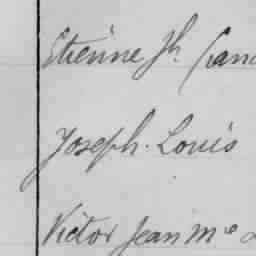 Etienne Jh.
Joseph. Louis
Victor Jean Me